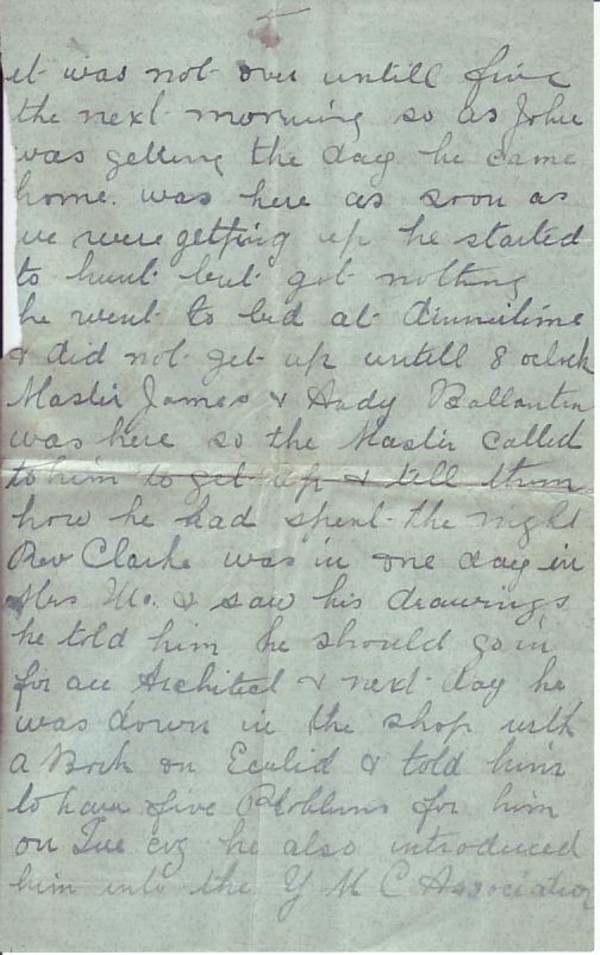 it was not over untill five
the next morning so as John
was getting the day he came
home. was here as soon as
we were getting up he started
to hunt but got nothing
he went to bed at dinnertime
& did not get up untill 8 oclock
Master James & Andy Ballantin
was here so the Master called
to him to get up & tell them
how he had spent the night
Rev Clarke was in one day in
Mrs Mc. & saw his drawings
he told him he should go in
for an Architect & next day he
was down in the shop with
a Book on Euclid & told him
to have five Problems for him
on Tue evg he also introduced
him into the Y M C Association